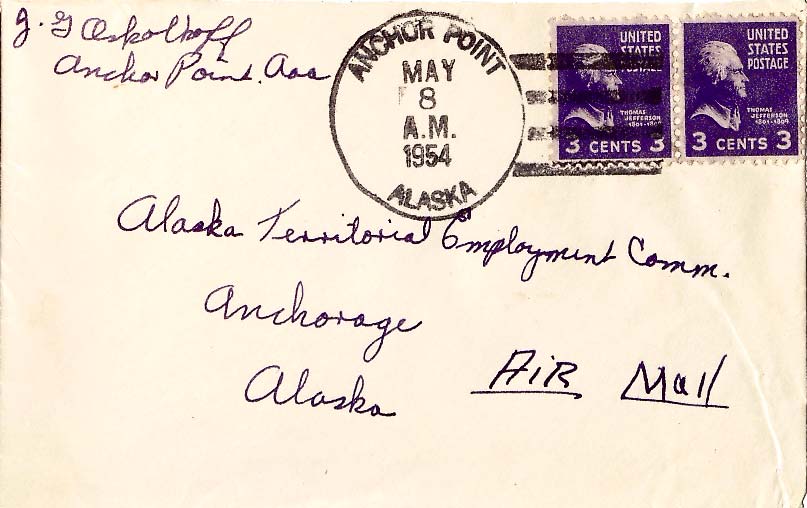 J. G Oskolkoff
Anchor Point. Aaa
ANCHOR POINT
MAY
8
A.M.
1954
ALASKA
UNITED
STATES
POSTAGE
THOMAS
JEFFERSON
1801-1809
3 CENTS 3
UNITED
STATES
POSTAGE
THOMAS
JEFFERSON
1801-1809
3 CENTS 3
Alaska Territorial Employment Comm.
Anchorage
Alaska
AiR Mail